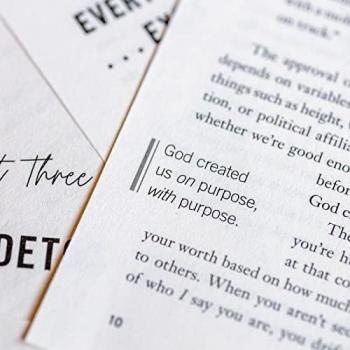 EVER
...E
t Three
DET
with a m
on track."
The approval o
depends on variables
things such as height,
tion, or political affilia
whether we're good eno
befor
God created
us on purpose,
with purpose.
God c
The
you're h
your worth based on how much
at that co
to others. When you aren't sec
of who I say you are, you drif
10